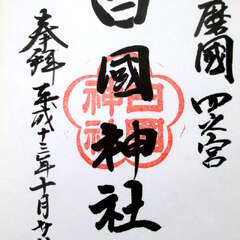 磨國 四之宮
白國神社
白國
神社
奉拜 平成十三年十月廿